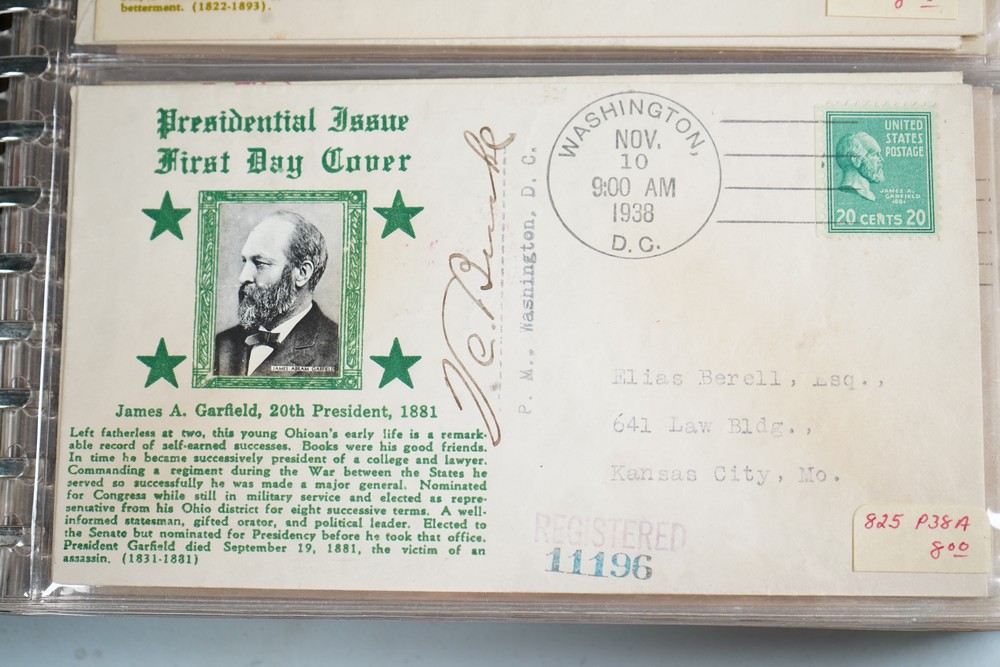 betterment. (1822-1893).
Presidential Issue
First Day Cover
JAMES ABRAM GARFIELD
James A. Garfield, 20th President, 1881
Left fatherless at two, this young Ohioan's early life is a remark-
able record of self-earned successes. Books were his good friends.
In time he became successively president of a college and lawyer.
Commanding a regiment during the War between the States he
served so successfully he was made a major general. Nominated
for Congress while still in military service and elected as repre-
sentative from his Ohio district for eight successive terms. A well-
informed statesman, gifted orator, and political leader. Elected to
the Senate but nominated for Presidency before he took that office.
President Garfield died September 19, 1881, the victim of an
assassin. (1831-1881)
P. M., Washington, D. C.
WASHINGTON,
NOV.
10
9:00 AM
1938
D.C.
UNITED
STATES
POSTAGE
JAMES A.
GARFIELD
1881
20 CENTS 20
Elias Berell, Esq.,
641 Law Bldg.,
Kansas City, Mo.
REGISTERED
11196
825 P38A
8 00